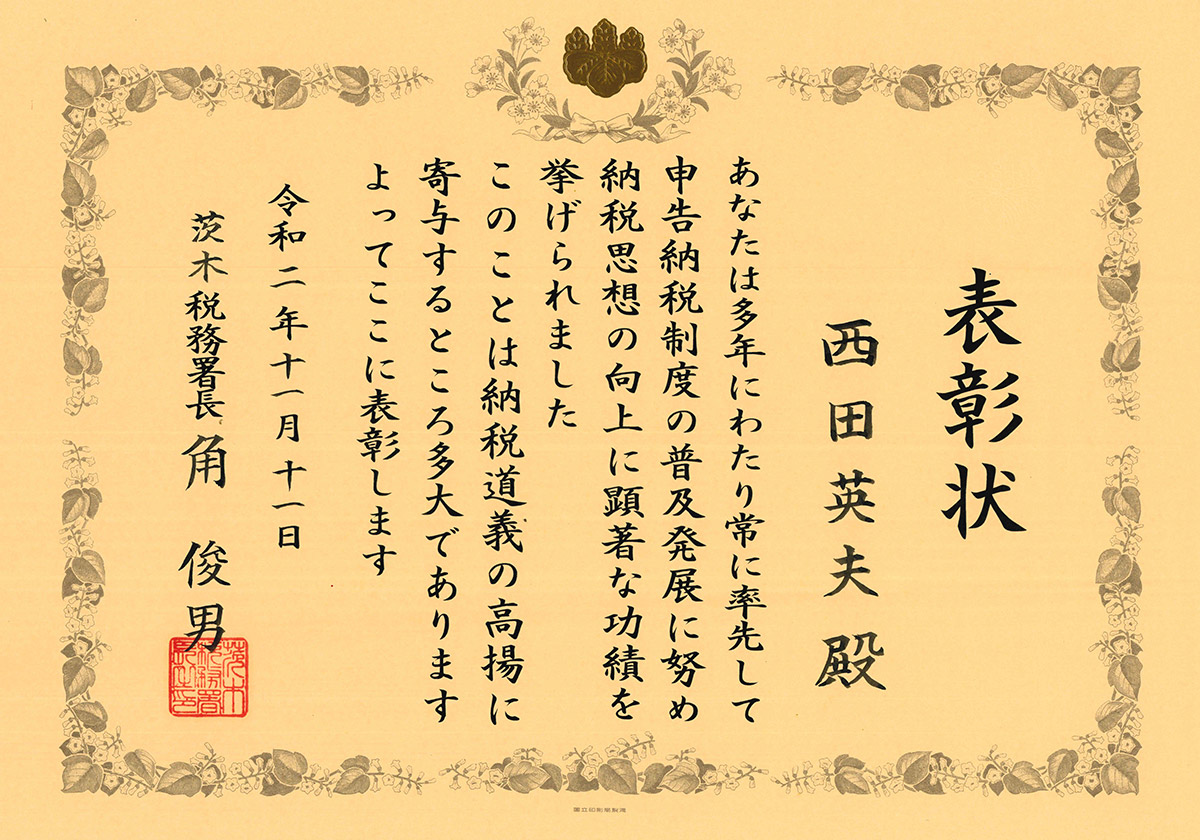 表彰状
西田英夫殿
あなたは多年にわたり常に率先して
申告納税制度の普及発展に努め
納税思想の向上に顕著な功績を
挙げられました
このことは納税道義の高揚に
寄与するところ多大であります
よってここに表彰します
令和二年十一月十一日
茨木税務署長 角 俊男
茨木税務署長之印
国立印刷局製造